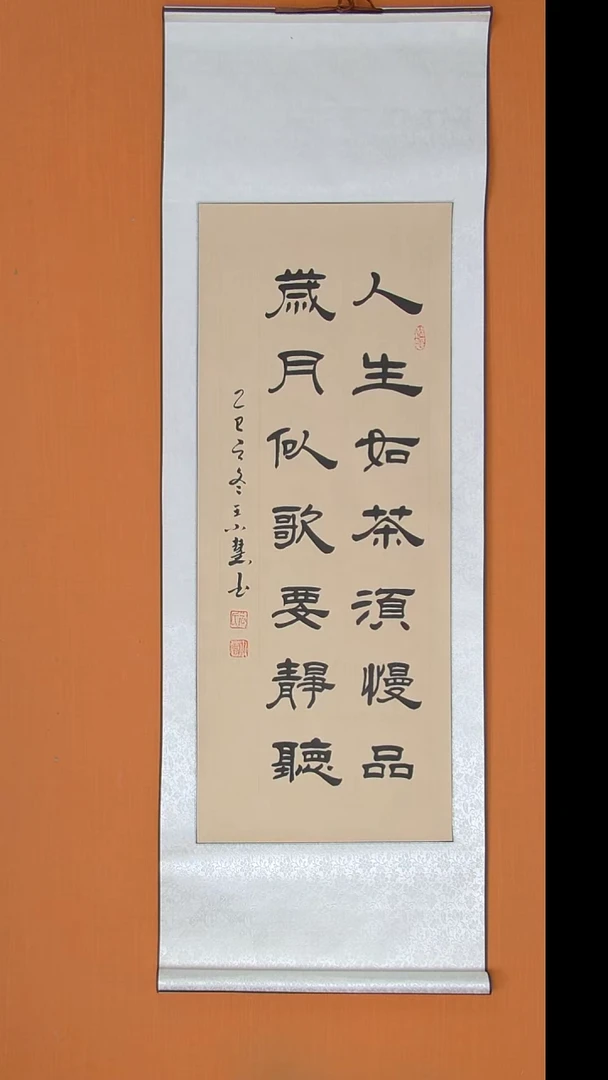 人生如茶須慢品
歲月似歌要靜聽
乙巳之冬王小慧书